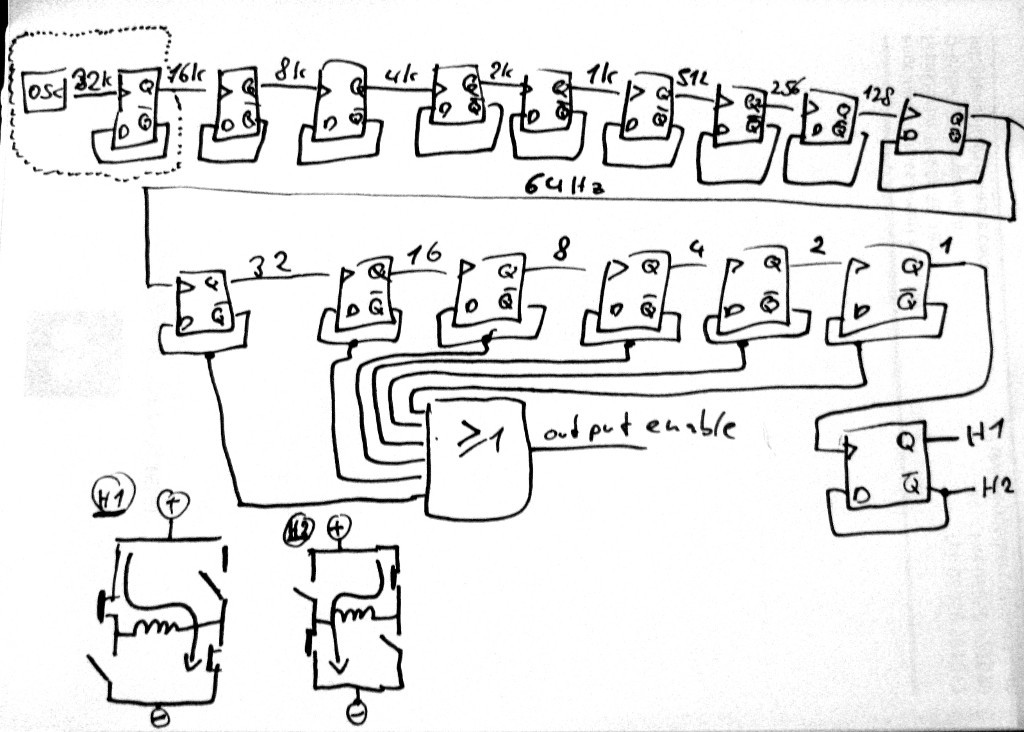 OSC 32k 16k 8k 4k 2k 1k 512 256 128
Q Q Q Q Q Q Q Q Q
D Q̅ D Q̅ D Q̅ D Q̅ D Q̅ D Q̅ D Q̅ D Q̅ D Q̅
64Hz
32 16 8 4 2 1
Q Q Q Q Q Q
D Q̅ D Q̅ D Q̅ D Q̅ D Q̅ D Q̅
≥1 output enable
Q H1
D Q̅ H2
H1 + H2 +
− −